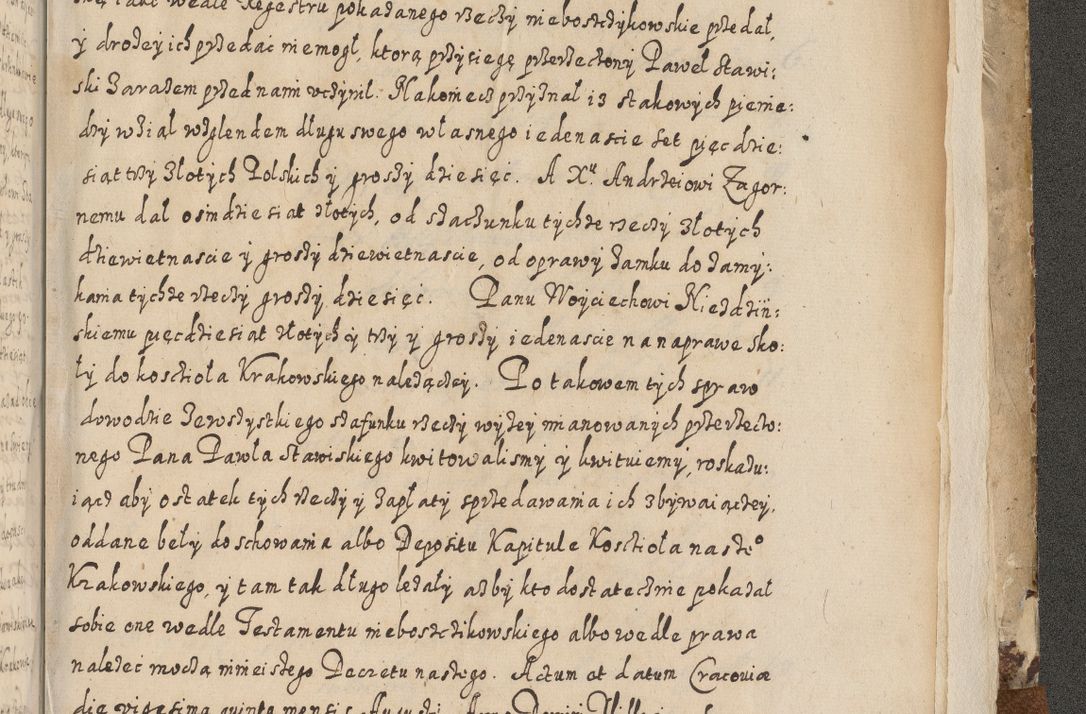 iako wedle Regestru pokazanego rzeczy nieboszczykowskie przedał,
y drożey ich przedać niemogł, ktorą przysięgę przerzeczony Paweł Stawi:
ski zarazem przed nami vczynił. Nakoniec przyznał iż ztakowych pienię:
dzy wziął względem długu swego własnego iedenascie set pięcdzie:
siąt trzy złotych Polskich y groszy dziesięć. A Xu Andrzeiowi Zagor:
nemu dał osmdziesiat złotych, od szacżunku tychże rzeczy złotych
dziewietnascie y groszy dziewietnascie, od oprawy zamku do zamy:
kania tychże rzeczy groszy dziesięć. Panu Woyciechowi Niezdziń:
skiemu pięcdziesiąt złotych y trzy y groszy iedenascie na naprawe sko:
ły do kosciola Krakowskiego należączey. Po takowem tych spraw
dowodzie zewszystkiego szafunku rzeczy wyżey mianowanych przerzeczo:
nego Pana Pawla Stawiskiego kwitowalismy y kwituiemy, roskazu:
iącz aby ostatek tych rzeczy y zapłaty sprzedawania ich zbywaiączey,
oddane beły do schowania albo Depositu Kapitule Kosciola naszeo
Krakowskiego, y tam tak długo leżały ażby kto dostatecznie pokazał
sobie one wedle Testamentu nieboszczikowskiego albo wedle prawa
należeć moczą ninieiszego Decretu naszego. Actum et datum Cracouiæ
die vigesima quinta mensis Augusti, Anno Domini